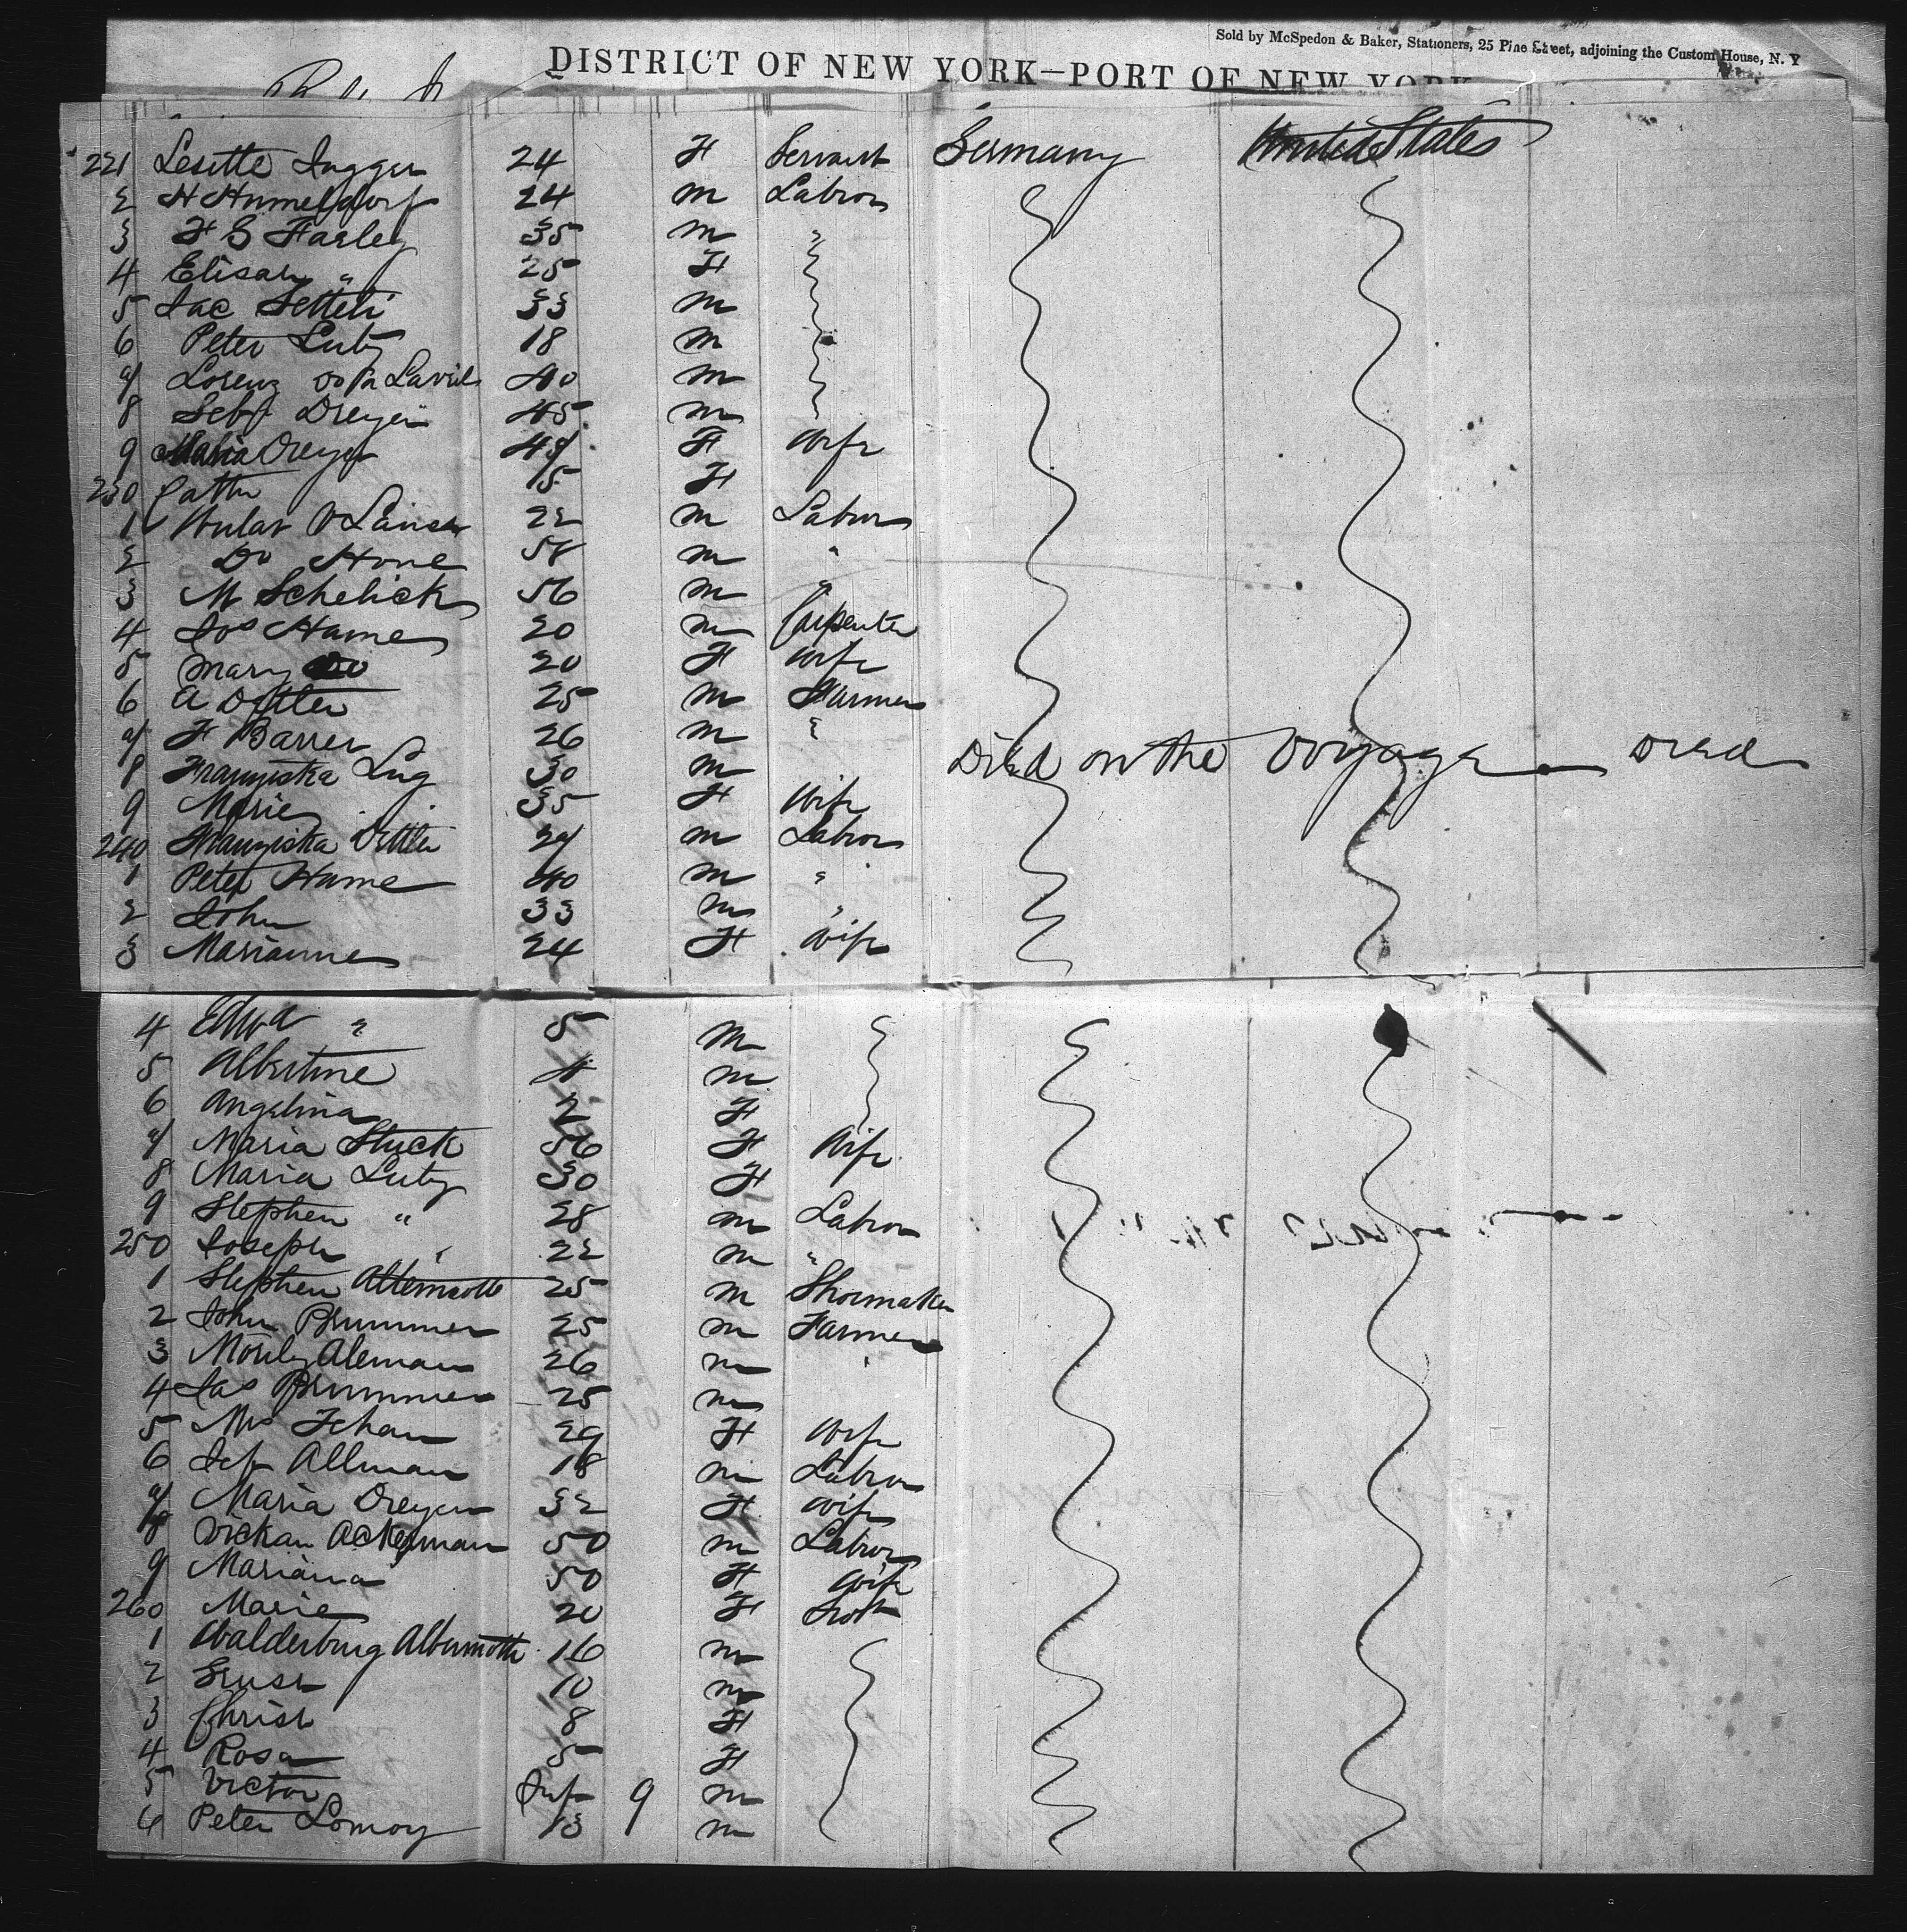 Sold by McSpedon & Baker, Stationers, 25 Pine Street, adjoining the Custom House, N. Y
DISTRICT OF NEW YORK—PORT OF NEW YORK
221 Lesette 24 F Servant Germany United States
2 H Humelsdorf 24 m Labror
3 F G Farley 35 m "
4 Elisah " 25 F
5 Jac Setteli 33 m
6 Peter Luty 18 m
7 Lorenz 40 m
8 Sebf Dreyer 45 m
9 Maria Dreyer 47 F Wife
230 Cath 15 F
1 22 m Labor
2 Do Hone 58 m "
3 M Schelick 56 m "
4 Jos Hame 20 m Carpenter
5 Mary Do 20 F Wife
6 A Dettler 25 m Farmer
7 F Barrer 26 m "
8 Franziska Lug 30 m Died on the Voyage Died
9 Marie 35 F Wife
240 Franziska Dettler 27 m Labror
1 Peter Hame 40 m "
2 John 33 m "
3 Marianne 24 F Wife
4 Edwd " 5 m
5 Albertine 4 m
6 Angelina 2 F
7 Maria Stuck 56 F Wife
8 Maria Luty 30 F
9 Stephen " 28 m Labror
250 Joseph " 22 m "
1 Stephen Altermoth 25 m Shoemaker
2 John Brummer 25 m Farmer
3 Aleman 26 m "
4 Jas Brummer 25 m
5 Mrs Jehan 29 F Wife
6 Jef Allman 18 m Labror
7 Maria Dreyer 32 F Wife
8 Ackerman 50 m Labror
9 Mariana 50 F Wife
260 Marie 20 F
1 Walderburg Altermoth 16 m
2 10 m
3 Christ 8 F
4 Rosa 5 F
5 Victor Inf 9 m
6 Peter Lomoy 13 m